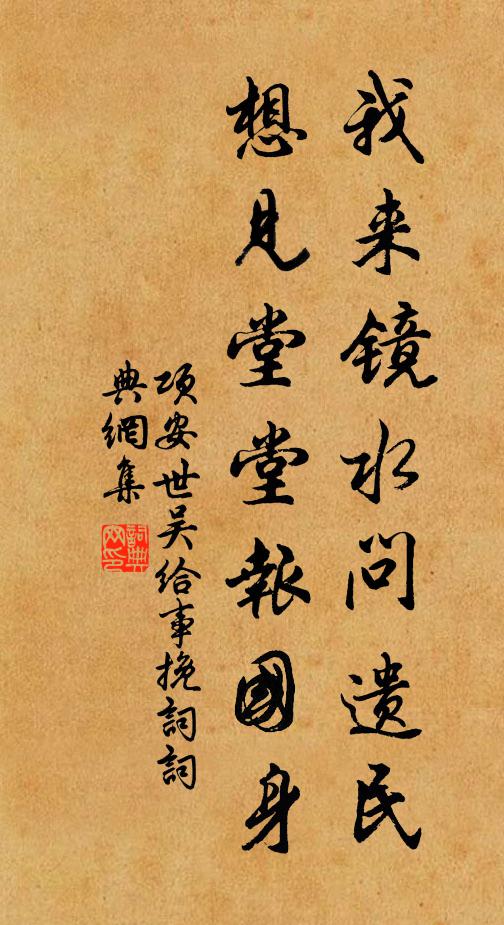 我来镜水问遗民
想见堂堂報國身
项安世吴给事挽詞詞
典網集
詞典网印